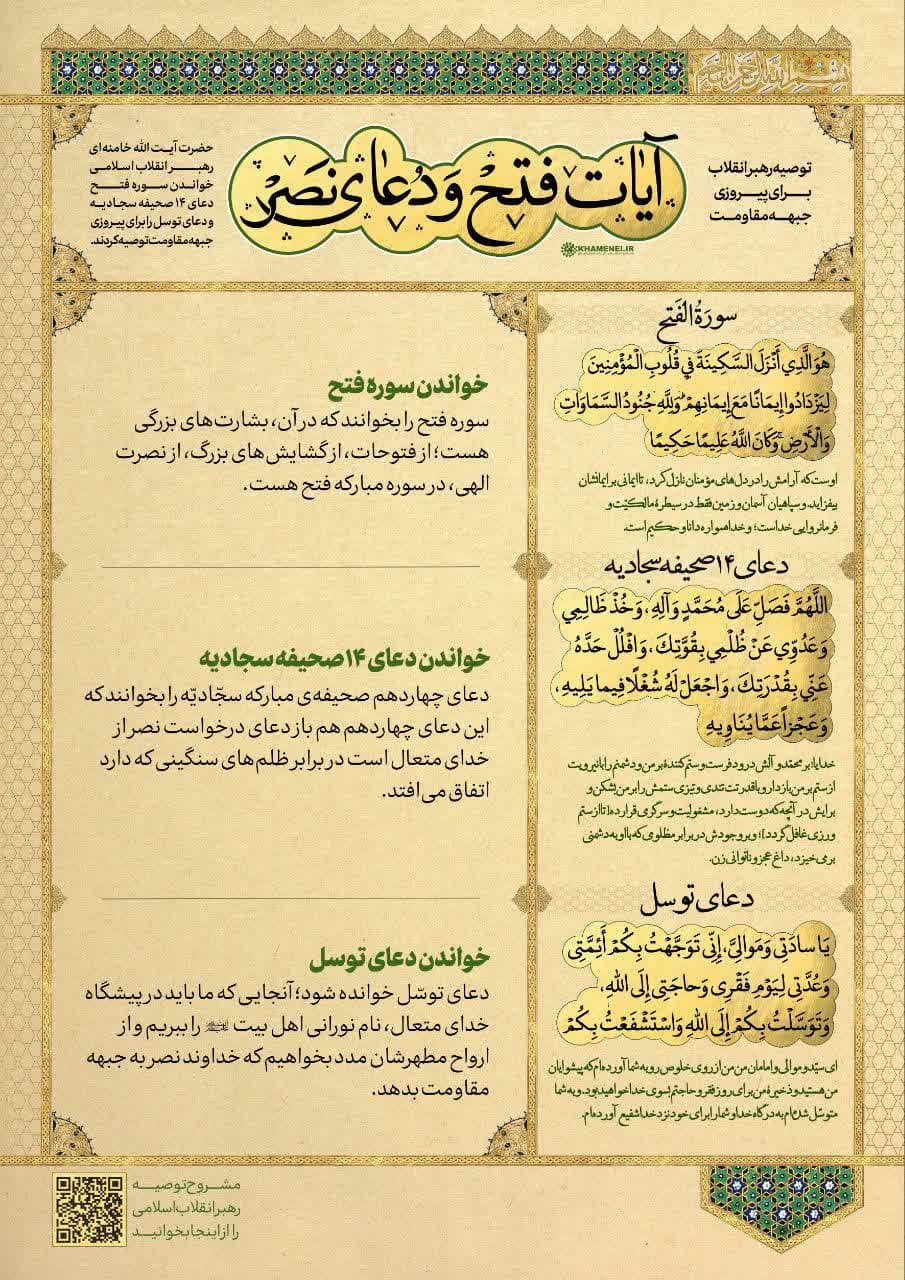 بسم الله الرحمن الرحیم
توصیه رهبر انقلاب
برای پیروزی
جبهه مقاومت
آیات فتح و دعای نصر
KHAMENEI.IR
حضرت آیت الله خامنه‌ای
رهبر انقلاب اسلامی
خواندن سوره فتح
دعای ۱۴ صحیفه سجادیه
و دعای توسل را برای پیروزی
جبهه مقاومت توصیه کردند.
سورة الفَتح
هُوَ الَّذِي أَنْزَلَ السَّكِينَةَ فِي قُلُوبِ الْمُؤْمِنِينَ
لِيَزْدَادُوا إِيمَانًا مَعَ إِيمَانِهِمْ ۗ وَلِلَّهِ جُنُودُ السَّمَاوَاتِ
وَالْأَرْضِ ۚ وَكَانَ اللَّهُ عَلِيمًا حَكِيمًا
اوست که آرامش را در دل‌های مؤمنان نازل کرد، تا ایمانی بر ایمانشان
بیفزاید. و سپاهیان آسمان و زمین فقط در سیطرهٔ مالکیّت و
فرمانروایی خداست؛ و خدا همواره دانا و حکیم است.
خواندن سوره فتح
سوره فتح را بخوانند که در آن، بشارت‌های بزرگی
هست؛ از فتوحات، از گشایش‌های بزرگ، از نصرت
الهی، در سوره مبارکه فتح هست.
دعای ۱۴ صحیفه سجادیه
اللَّهُمَّ فَصَلِّ عَلَى مُحَمَّدٍ وَآلِهِ، وَخُذْ ظَالِمِي
وَعَدُوِّي عَنْ ظُلْمِي بِقُوَّتِكَ، وَافْلُلْ حَدَّهُ
عَنِّي بِقُدْرَتِكَ، وَاجْعَلْ لَهُ شُغْلًا فِيما يَلِيهِ،
وَعَجْزاً عَمَّا يُنَاوِيهِ
خدایا؛ بر محمّد و آلش درود فرست و ستم کنندهٔ بر من و دشمنم را با نیرویت
از ستم بر من باز دار و با قدرتت تندی و تیزی ستمش را بر من بشکن و
برایش در آنچه که دوست دارد، مشغولیت و سرگرمی قرار ده [تا از ستم
ورزی غافل گردد]؛ و بر وجودش در برابر مظلومی که با او به دشمنی
برمی‌خیزد، داغ عجز و ناتوانی زن.
خواندن دعای ۱۴ صحیفه سجادیه
دعای چهاردهم صحیفه‌ی مبارکه سجّادیّه را بخوانند که
این دعای چهاردهم هم باز دعای درخواست نصر از
خدای متعال است در برابر ظلم‌های سنگینی که دارد
اتفاق می‌افتد.
دعای توسل
يَا سادَتِي وَمَوالِيَّ، إِنِّي تَوَجَّهْتُ بِكُمْ أَئِمَّتِي
وَعُدَّتِي لِيَوْمِ فَقْرِي وَحاجَتِي إِلَى اللهِ،
وَتَوَسَّلْتُ بِكُمْ إِلَى اللهِ وَاسْتَشْفَعْتُ بِكُمْ
ای سیّد و موالی و امامان من من از روی خلوص رو به شما آورده‌ام که پیشوایان
من هستید و ذخیرهٔ من برای روز فقر و حاجتم بسوی خدا خواهید بود. و به شما
متوسّل شده‌ام به درگاه خدا و شما را برای خود نزد خدا شفیع آورده‌ام.
خواندن دعای توسل
دعای توسّل خوانده شود؛ آنجایی که ما باید در پیشگاه
خدای متعال، نام نورانی اهل بیت را ببریم و از
ارواح مطهرشان مدد بخواهیم که خداوند نصر به جبهه
مقاومت بدهد.
مشروح توصیه
رهبر انقلاب اسلامی
را از اینجا بخوانید